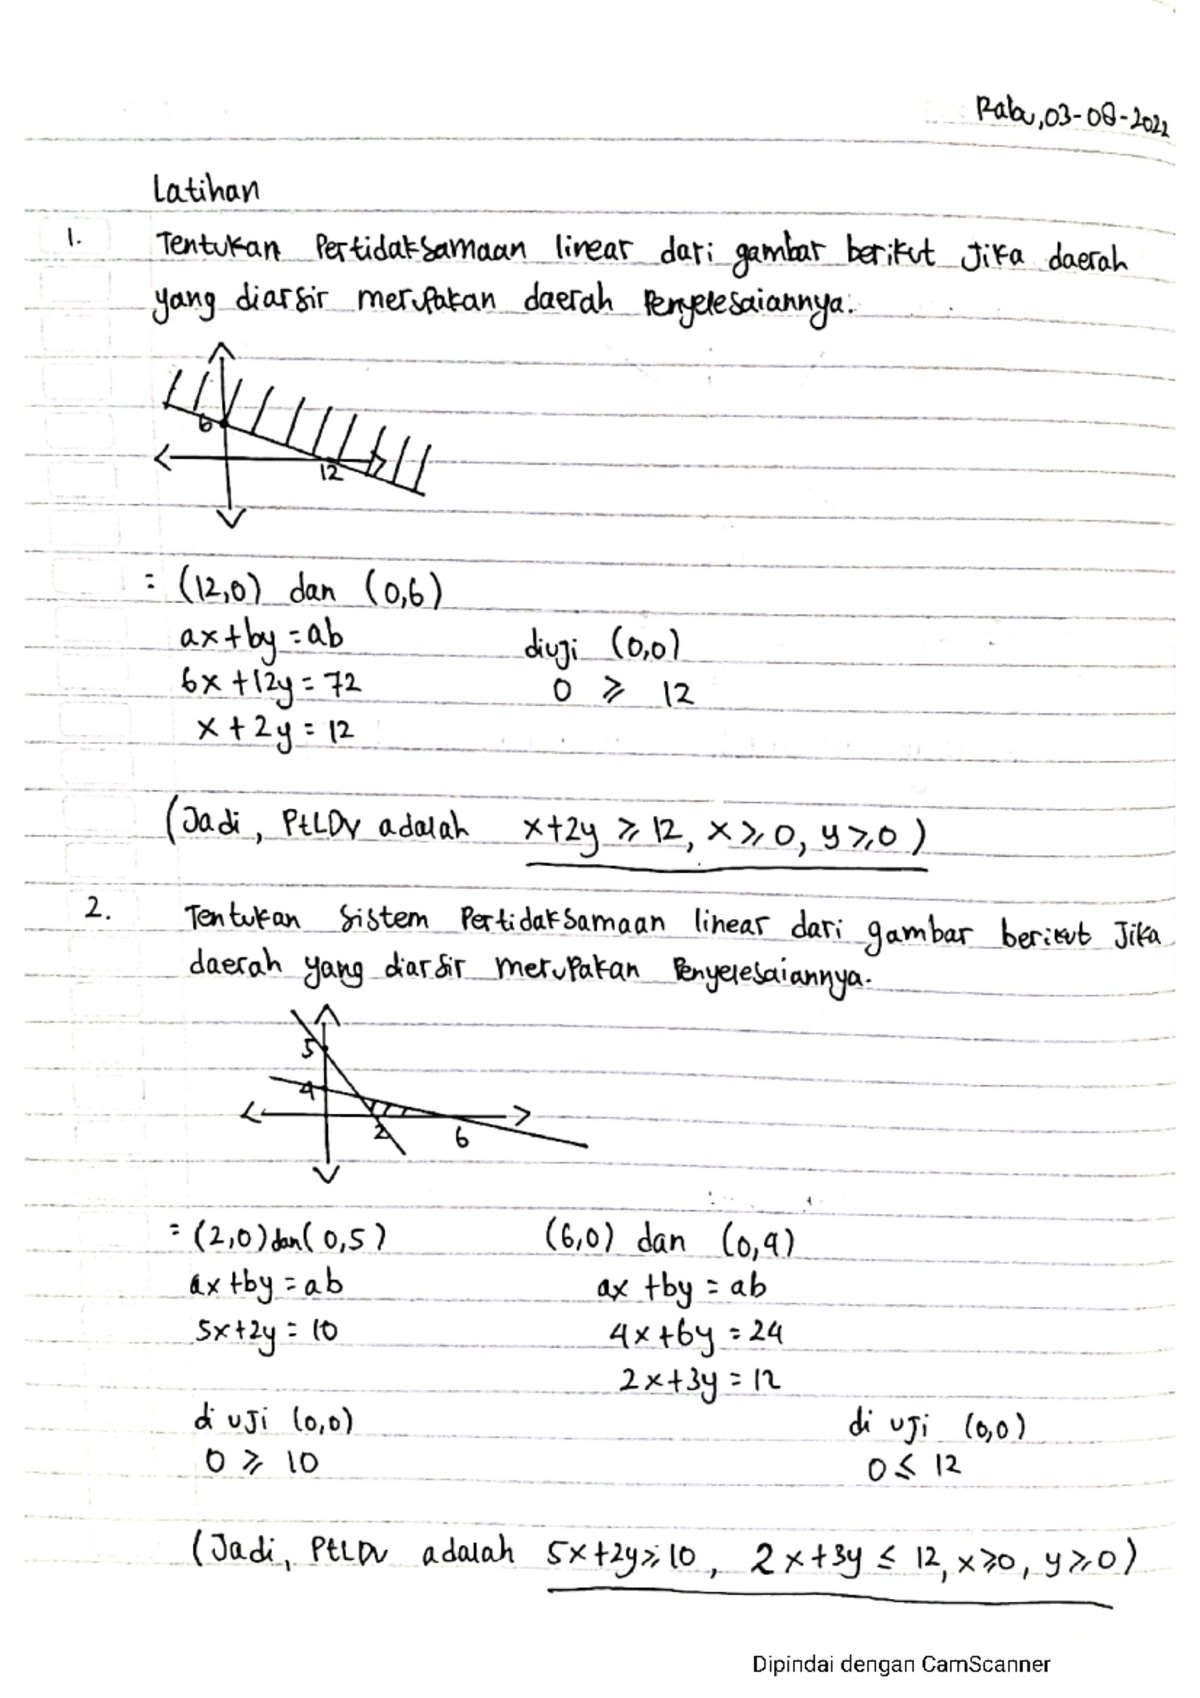 Rabu, 03-08-2022
Latihan
1. Tentukan Pertidaksamaan linear dari gambar berikut Jika daerah
yang diarsir merupakan daerah Penyelesaiannya.
6
12
= (12,0) dan (0,6)
ax+by=ab diuji (0,0)
6x+12y=72 0 ⩾ 12
x+2y=12
(Jadi, PtLDV adalah x+2y ⩾ 12, x⩾0, y⩾0)
2. Tentukan Sistem Pertidaksamaan linear dari gambar berikut Jika
daerah yang diarsir merupakan Penyelesaiannya.
5
4
2 6
= (2,0) dan (0,5) (6,0) dan (0,4)
ax+by=ab ax+by=ab
5x+2y=10 4x+6y=24
2x+3y=12
di uji (0,0) di uji (0,0)
0 ⩾ 10 0 ≤ 12
(Jadi, PtLDV adalah 5x+2y⩾10, 2x+3y ≤ 12, x⩾0, y⩾0)
Dipindai dengan CamScanner